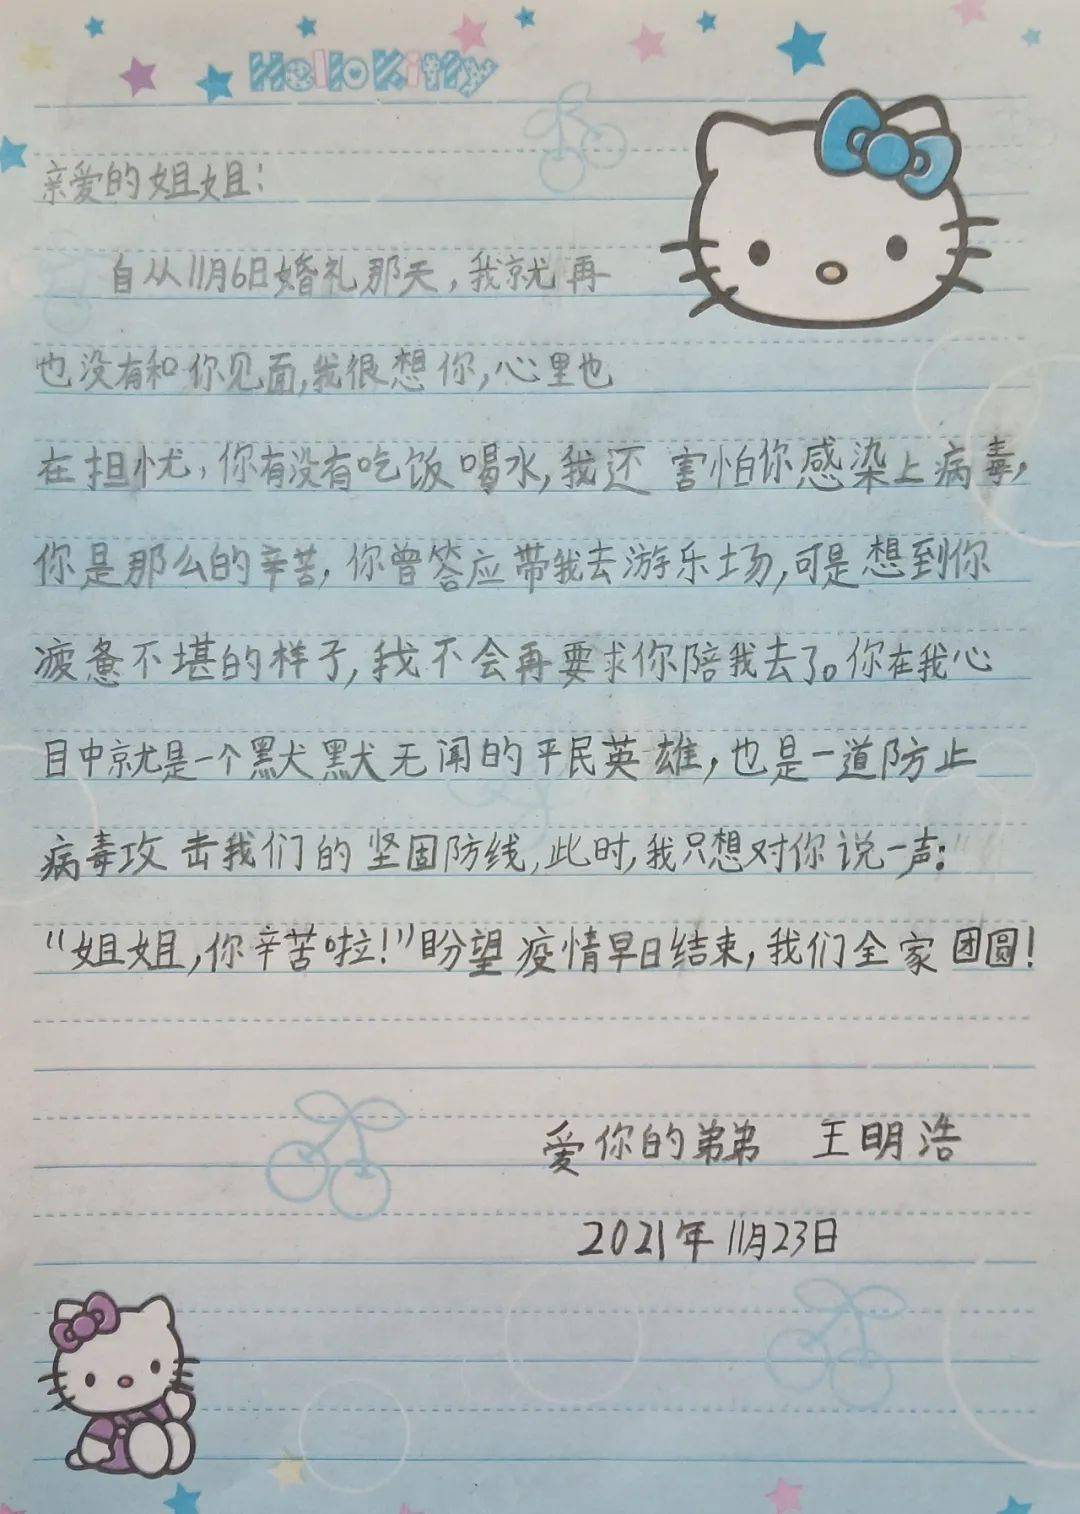 Hello Kitty
亲爱的姐姐：
自从11月6日婚礼那天，我就再
也没有和你见面，我很想你，心里也
在担忧，你有没有吃饭喝水，我还害怕你感染上病毒，
你是那么的辛苦，你曾答应带我去游乐场，可是想到你
疲惫不堪的样子，我不会再要求你陪我去了。你在我心
目中就是一个默默无闻的平民英雄，也是一道防止
病毒攻击我们的坚固防线，此时，我只想对你说一声：
“姐姐，你辛苦啦！”盼望疫情早日结束，我们全家团圆！
爱你的弟弟 王明浩
2021年11月23日